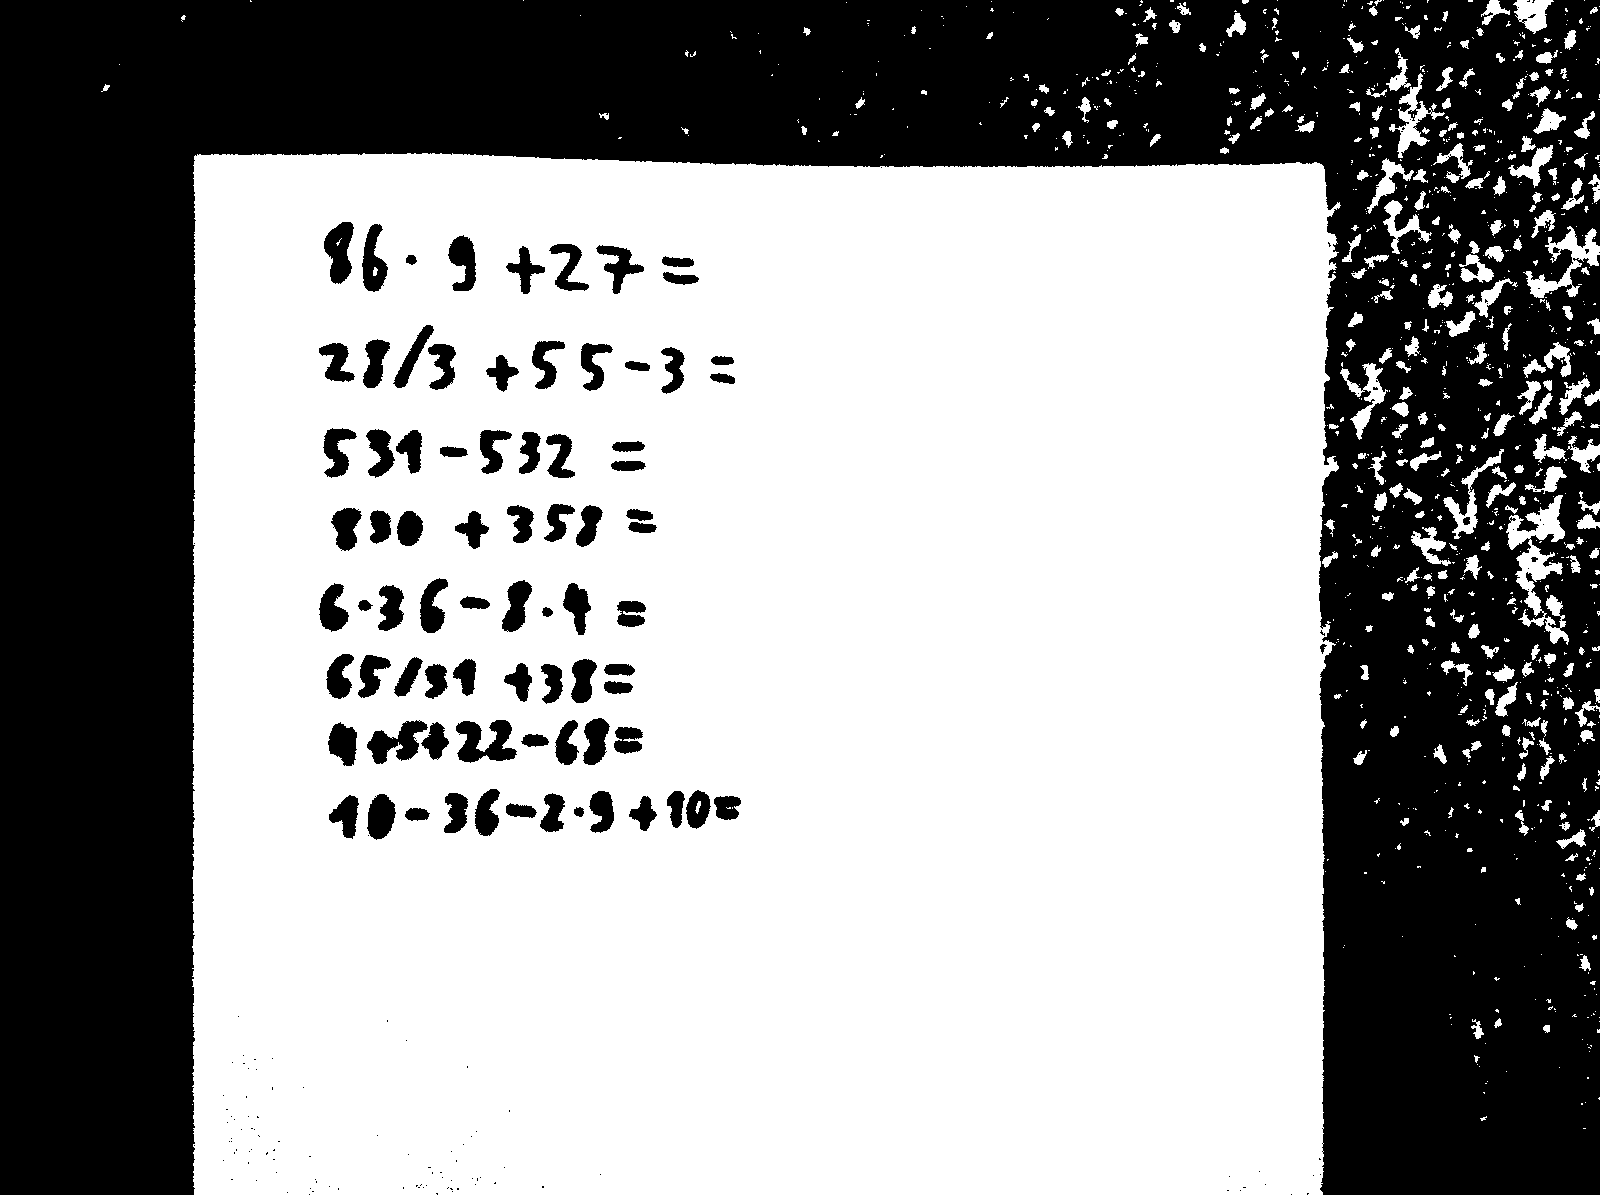 86· 9 +27=
28/3 +55-3=
531-532 =
830 +358=
6·36-8·4 =
65/31 +38=
4+5+22-68=
10-36-2·9+10=